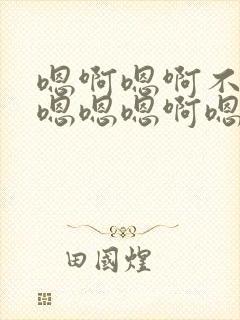 嗯啊嗯啊不
嗯嗯嗯啊嗯
田国煌